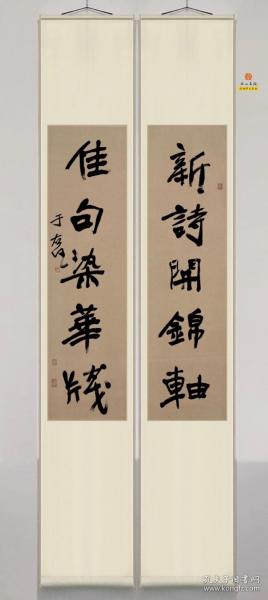 新詩開錦軸
佳句染華牋
于右任
孔夫子旧书网
www.kongfz.com